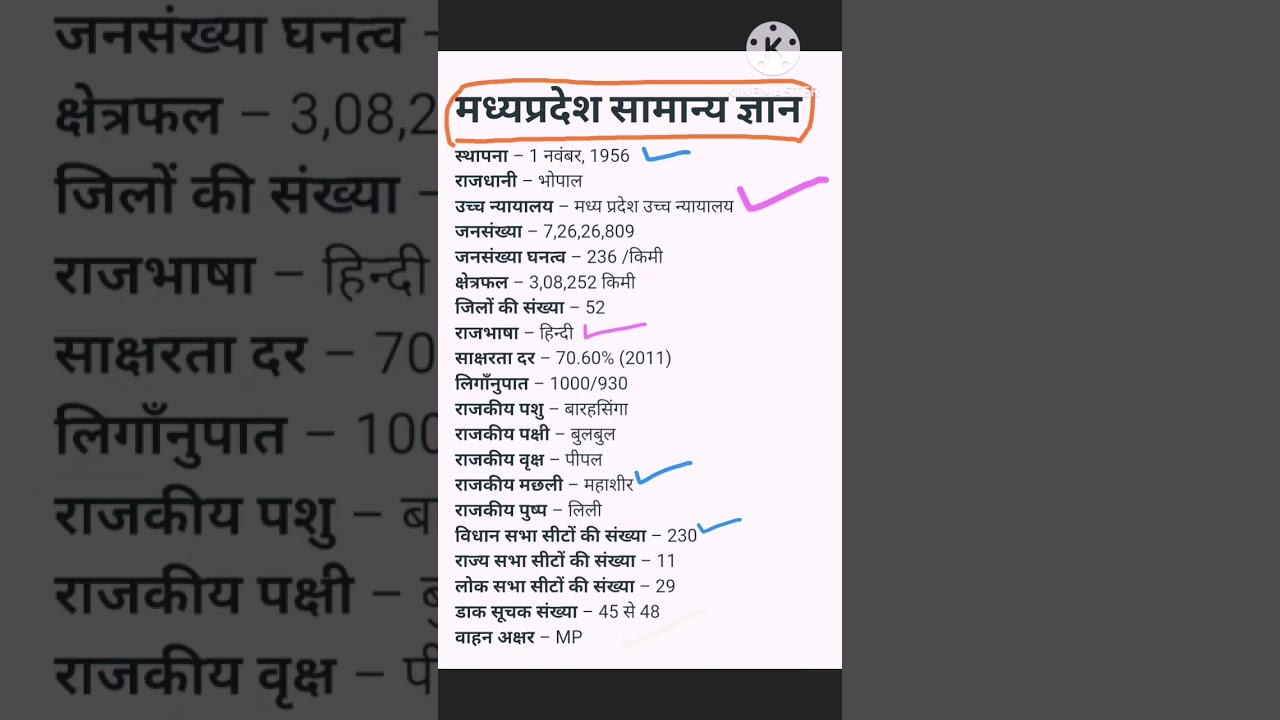 जनसंख्या घनत्व –
क्षेत्रफल – 3,08,2
जिलों की संख्या –
राजभाषा – हिन्दी
साक्षरता दर – 70
लिगाँनुपात – 100
राजकीय पशु – ब
राजकीय पक्षी –
राजकीय वृक्ष – पी
K
KINEMASTER
मध्यप्रदेश सामान्य ज्ञान
स्थापना – 1 नवंबर, 1956
राजधानी – भोपाल
उच्च न्यायालय – मध्य प्रदेश उच्च न्यायालय
जनसंख्या – 7,26,26,809
जनसंख्या घनत्व – 236 /किमी
क्षेत्रफल – 3,08,252 किमी
जिलों की संख्या – 52
राजभाषा – हिन्दी
साक्षरता दर – 70.60% (2011)
लिगाँनुपात – 1000/930
राजकीय पशु – बारहसिंगा
राजकीय पक्षी – बुलबुल
राजकीय वृक्ष – पीपल
राजकीय मछली – महाशीर
राजकीय पुष्प – लिली
विधान सभा सीटों की संख्या – 230
राज्य सभा सीटों की संख्या – 11
लोक सभा सीटों की संख्या – 29
डाक सूचक संख्या – 45 से 48
वाहन अक्षर – MP